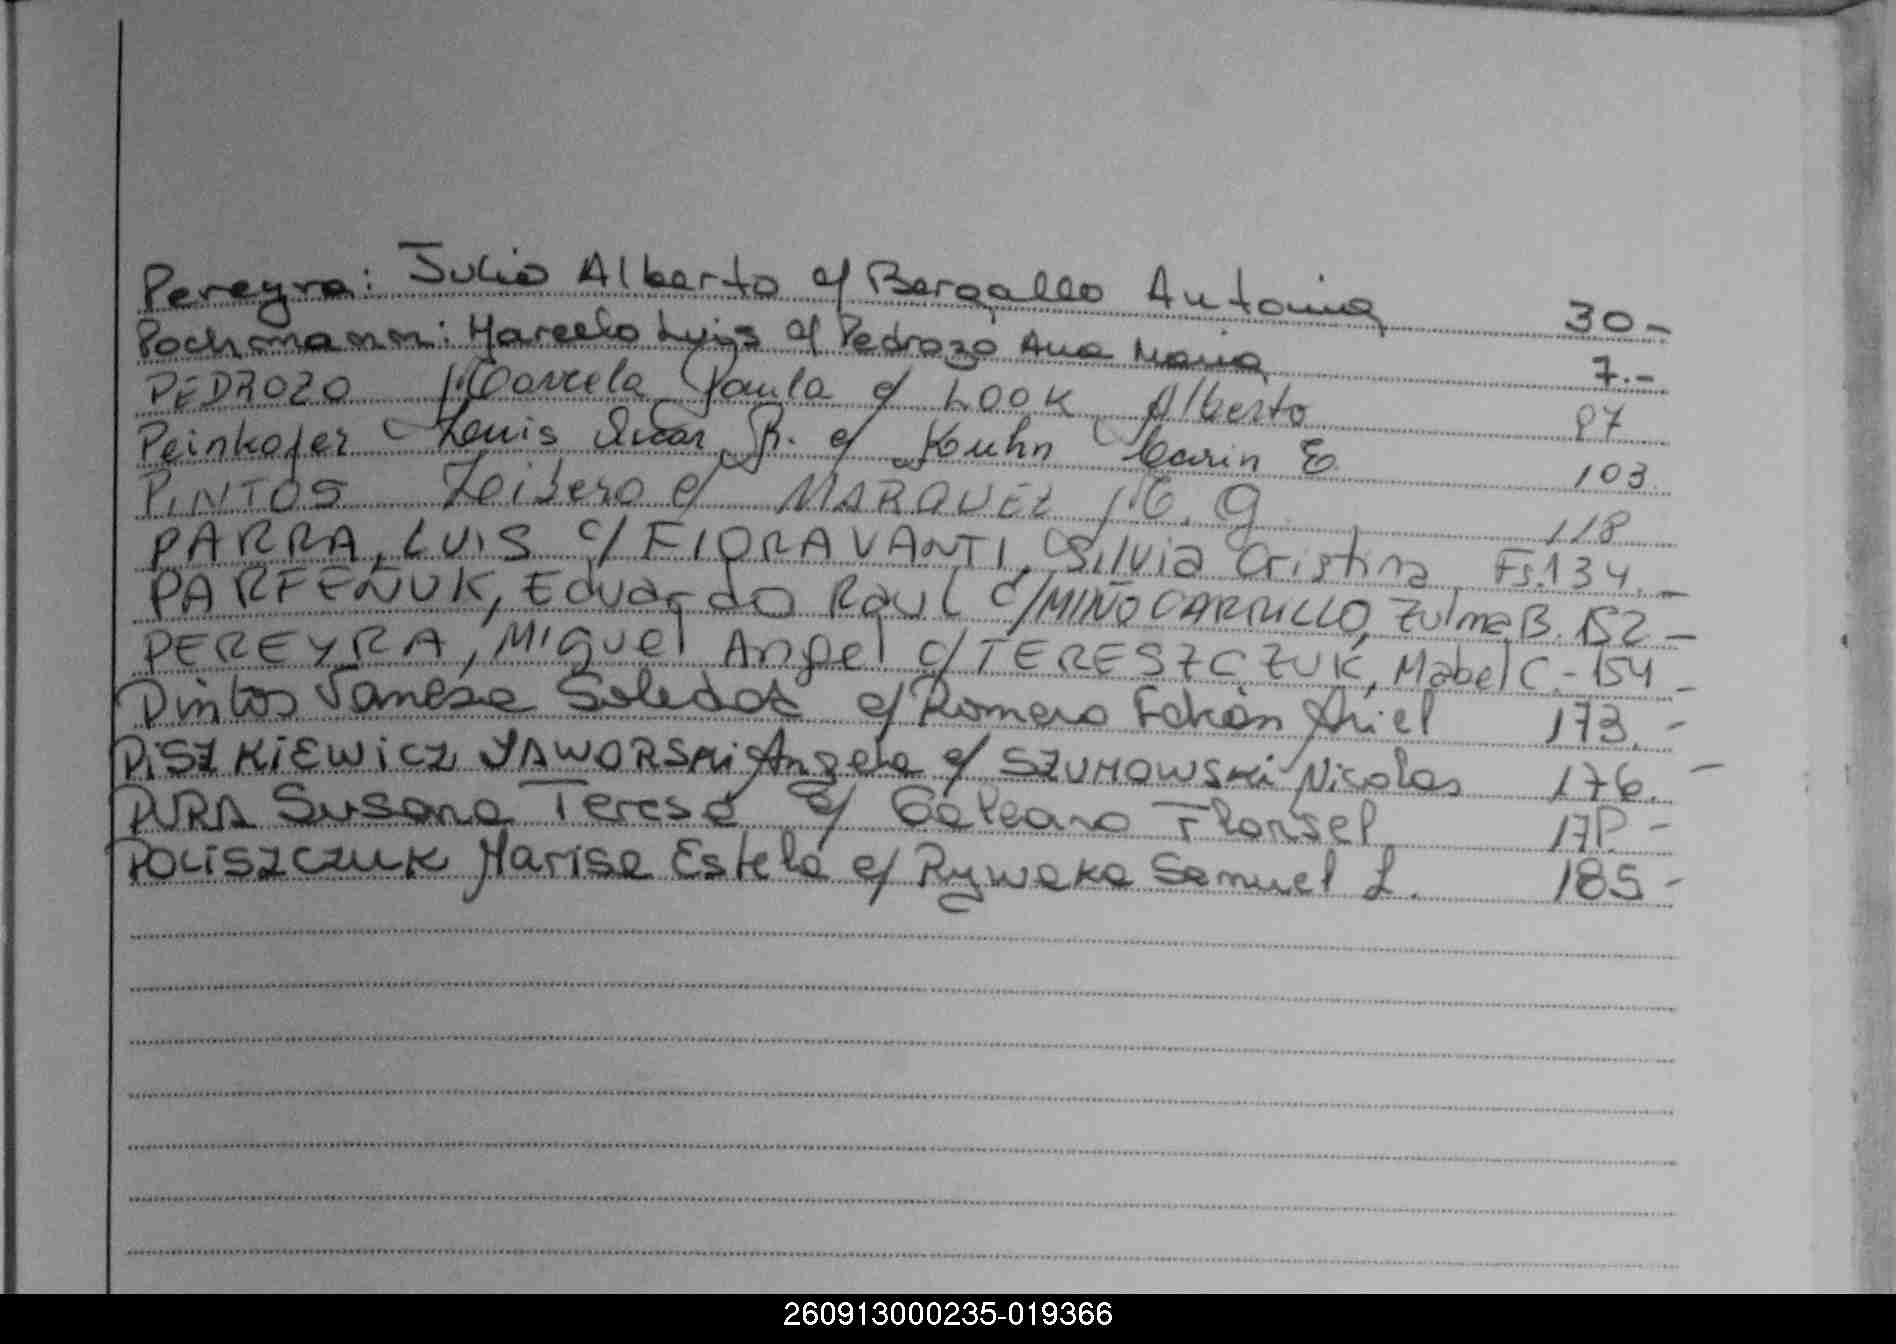 Pereyra: Julio Alberto c/ Bergallo Antonia 30.-
Pochmann: Marcelo Luis c/ Pedrozo Ana Maria 7.-
PEDROZO Marcela Paula c/ LOOK Alberto 87
Peinkofer Luis Oscar R. c/ Kuhn Carin E. 103.
PINTOS Leibero c/ MARQUEZ M. G. 118
PARRA, LUIS c/ FIORAVANTI, Silvia Cristina Fs.134.-
PARFENUK, Eduardo Raul c/ MIÑO CARRILLO, Zulma B. 152 -
PEREYRA, Miguel Angel c/ TERESZCZUK, Mabel C.- 154 -
Pintos Vanesa Soledad c/ Romero Fabian Ariel 173.-
PiSZKiEWicz JAWORSKi Angela c/ SZUMOWSKi Nicolas 176. -
PURA Susana Teresa c/ Galeano Florisel 178 -
POLiSZCZUK Marisa Estela c/ Rywaka Samuel L. 185 -
260913000235-019366